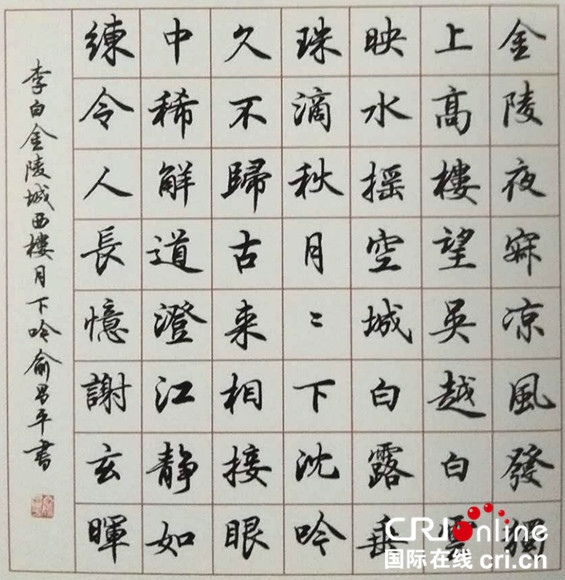 金陵夜寂凉風發獨
上高樓望吳越白雲
映水摇空城白露垂
珠滴秋月〻下沈吟
久不歸古来相接眼
中稀解道澄江静如
練令人長憶謝玄暉
李白金陵城西樓月下吟俞昌平書
CRIonline
国际在线 cri.cn